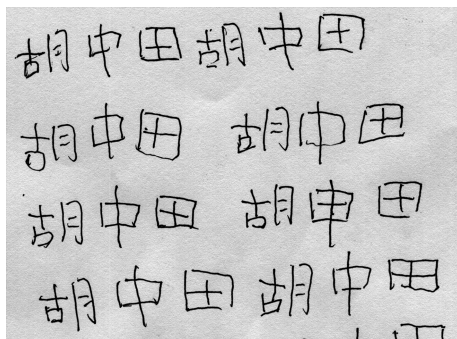 胡中田胡中田
胡中田 胡中田
胡中田 胡申田
胡中田 胡中田